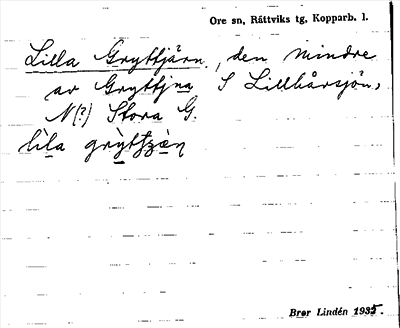 Ore sn, Rättviks tg, Kopparb. l.
Lilla Gryttjärn, den mindre
av Gryttjna, S Lillhårsjön,
N(?) Stora G.
Bror Lindén 1935.